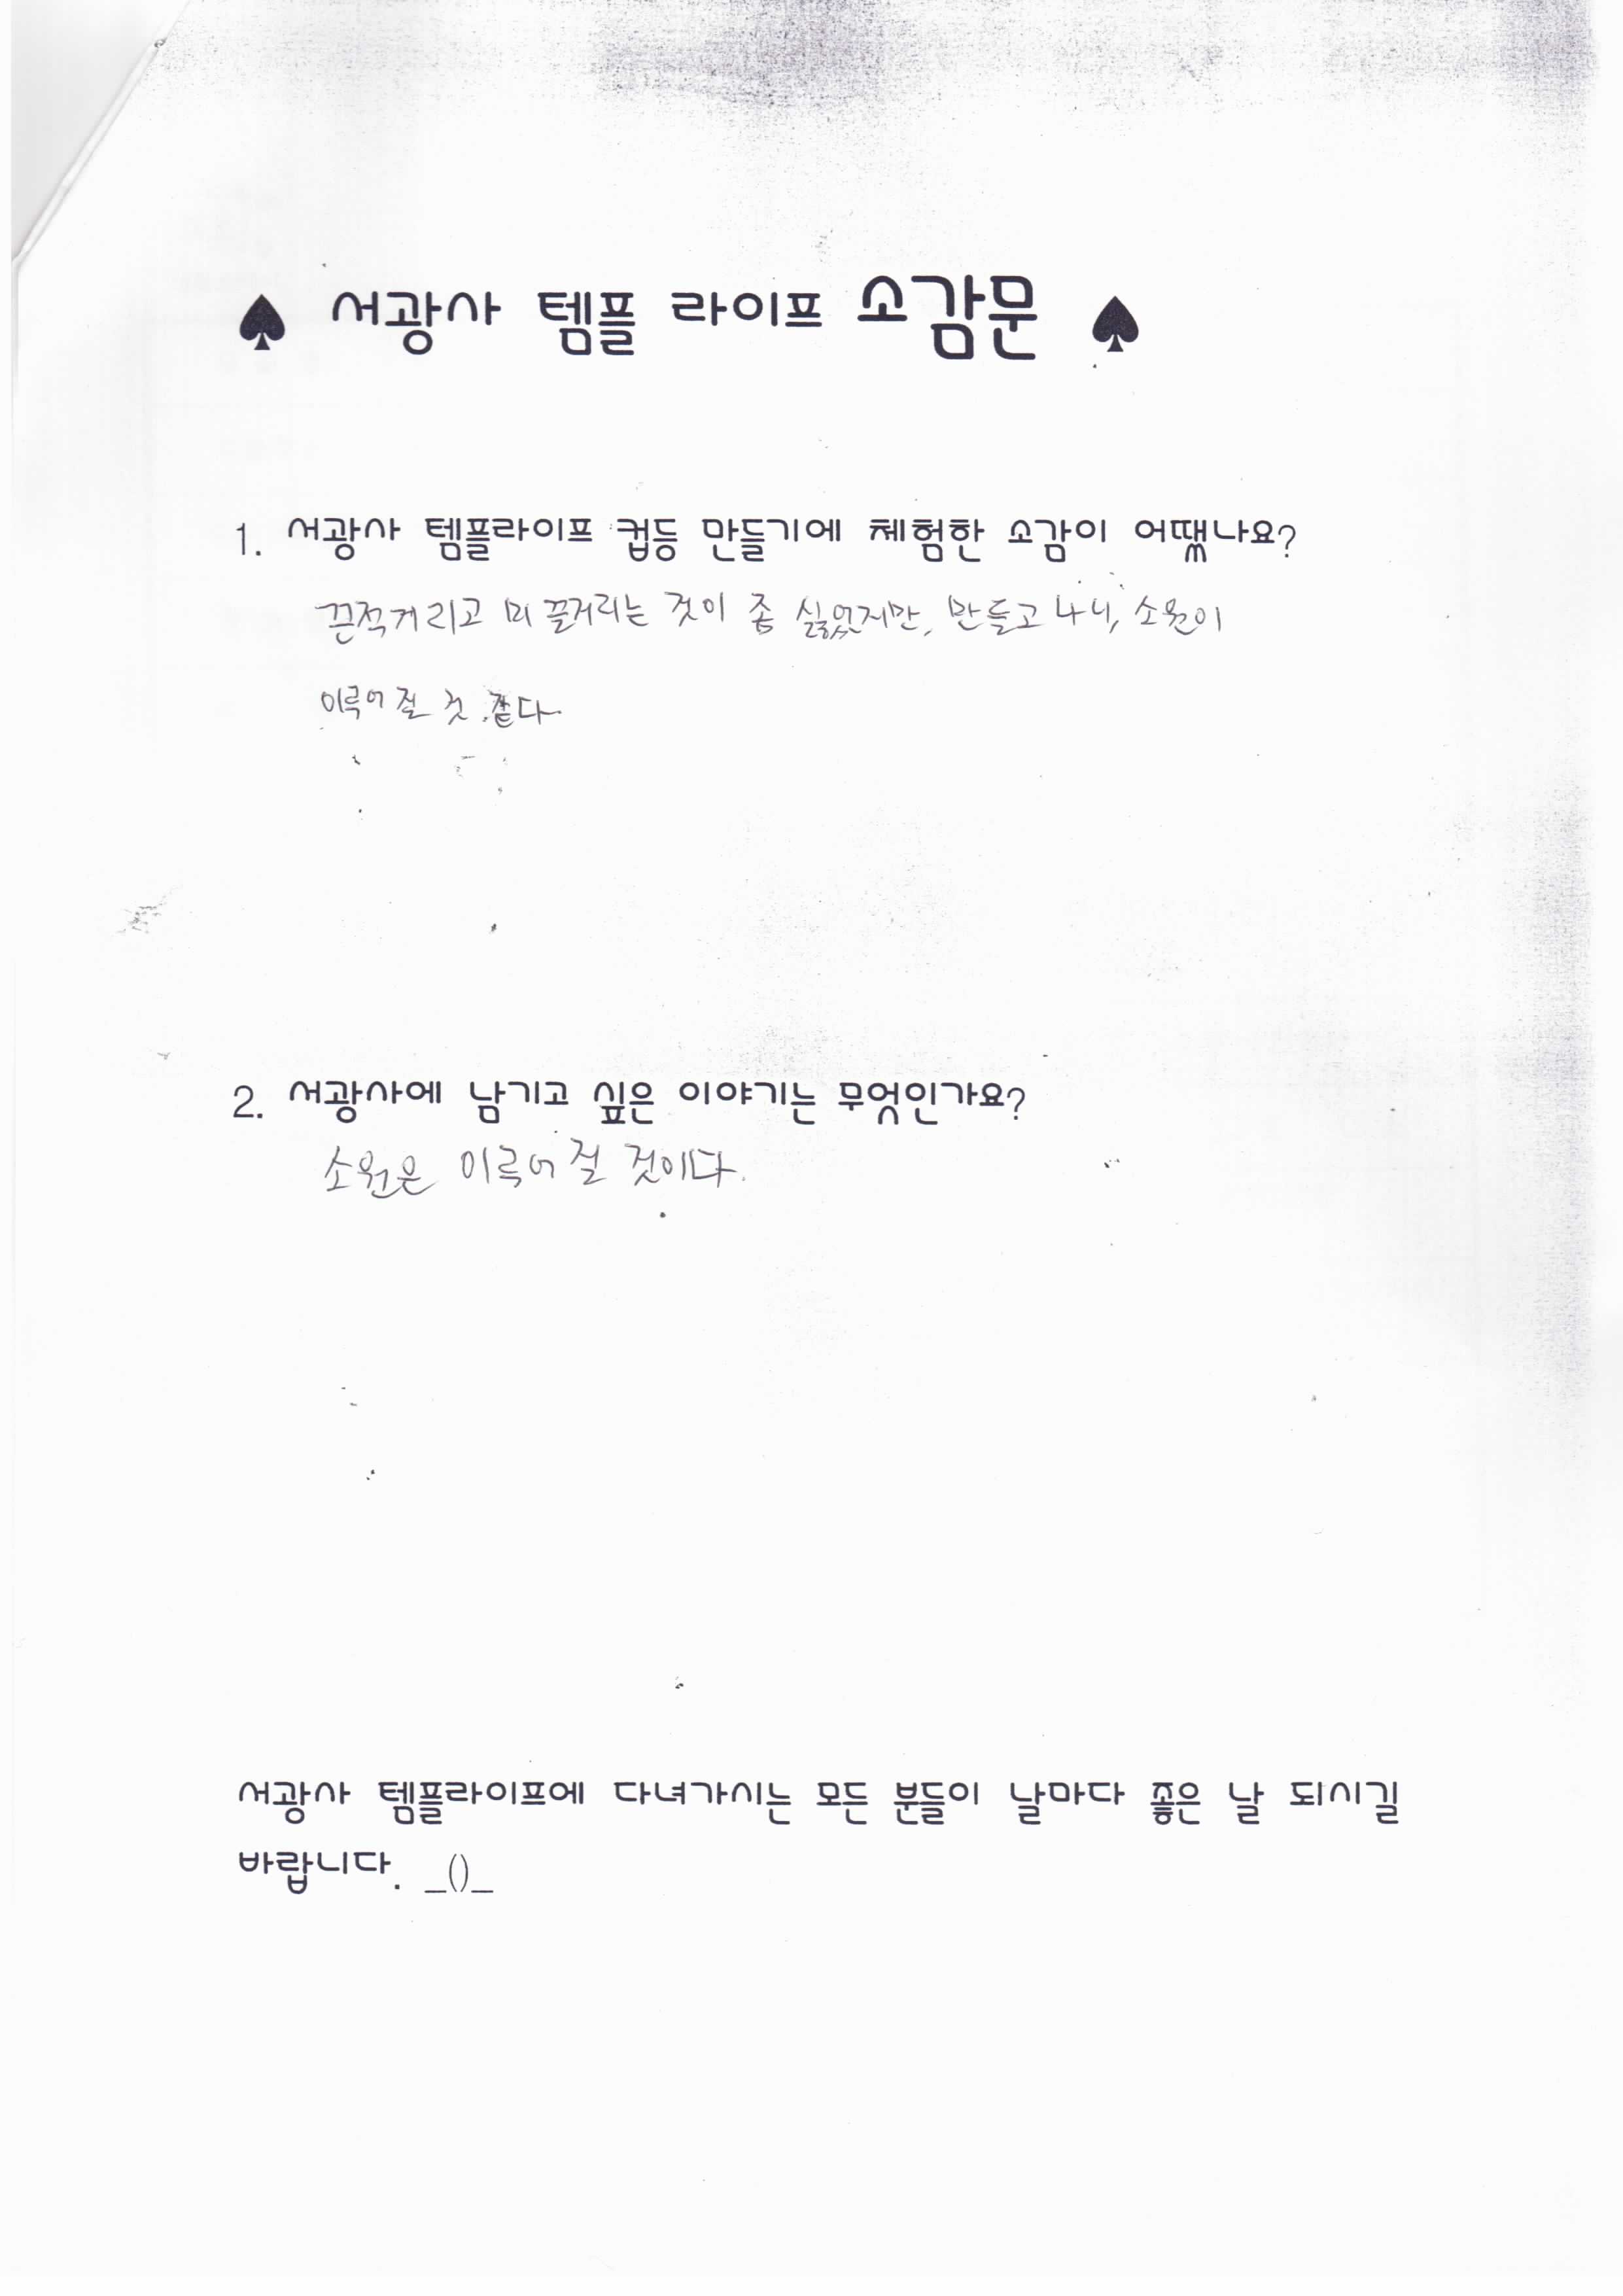 ♠ 서광사 템플 라이프 소감문 ♠
1. 서광사 템플라이프 컵등 만들기에 체험한 소감이 어땠나요?
끈적거리고 미끌거리는 것이 좀 싫었지만, 만들고 나니, 소원이
이루어질 것 같다
2. 서광사에 남기고 싶은 이야기는 무엇인가요?
소원은 이루어질 것이다.
서광사 템플라이프에 다녀가시는 모든 분들이 날마다 좋은 날 되시길
바랍니다. _()_